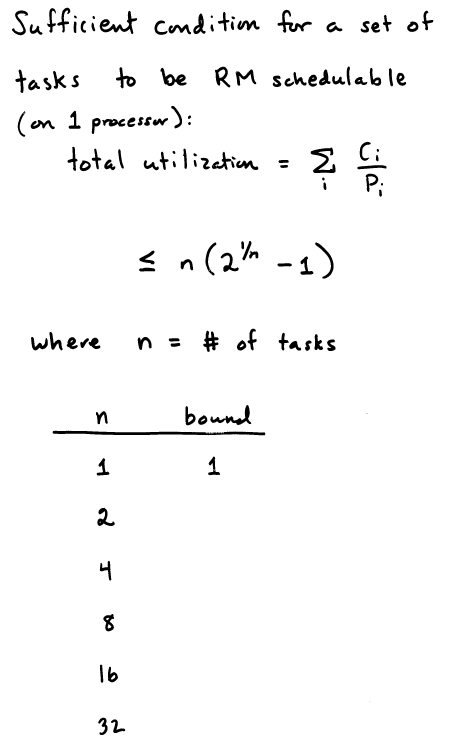 Sufficient condition for a set of
tasks to be RM schedulable
(on 1 processor):
total utilization = Σ_i C_i/P_i
≤ n(2^{1/n} - 1)
where n = # of tasks
n bound
1 1
2
4
8
16
32